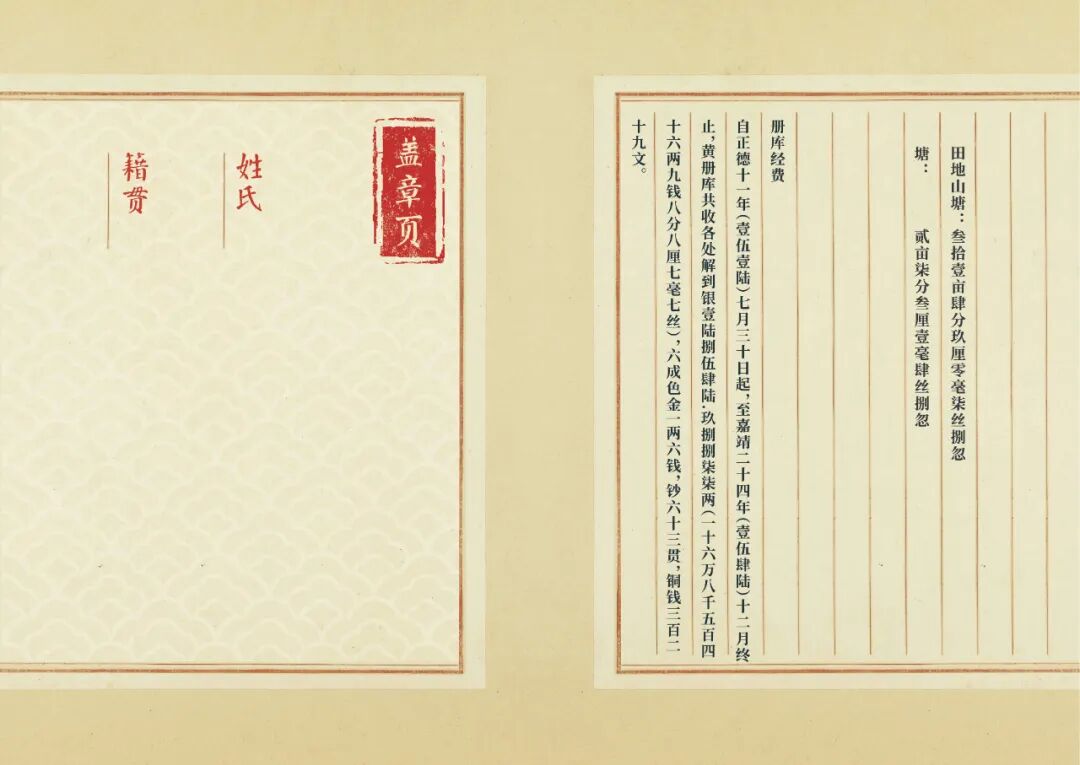 田地山塘：叁拾壹亩肆分玖厘零毫柒丝捌忽
塘：贰亩柒分叁厘壹毫肆丝捌忽
册库经费
自正德十一年（壹伍壹陆）七月三十日起，至嘉靖二十四年（壹伍肆陆）十二月终
止，黄册库共收各处解到银壹陆捌伍肆陆.玖捌捌柒柒两（一十六万八千五百四
十六两九钱八分八厘七毫七丝），六成色金一两六钱，钞六十三贯，铜钱三百二
十九文。
盖章页
姓氏
籍贯